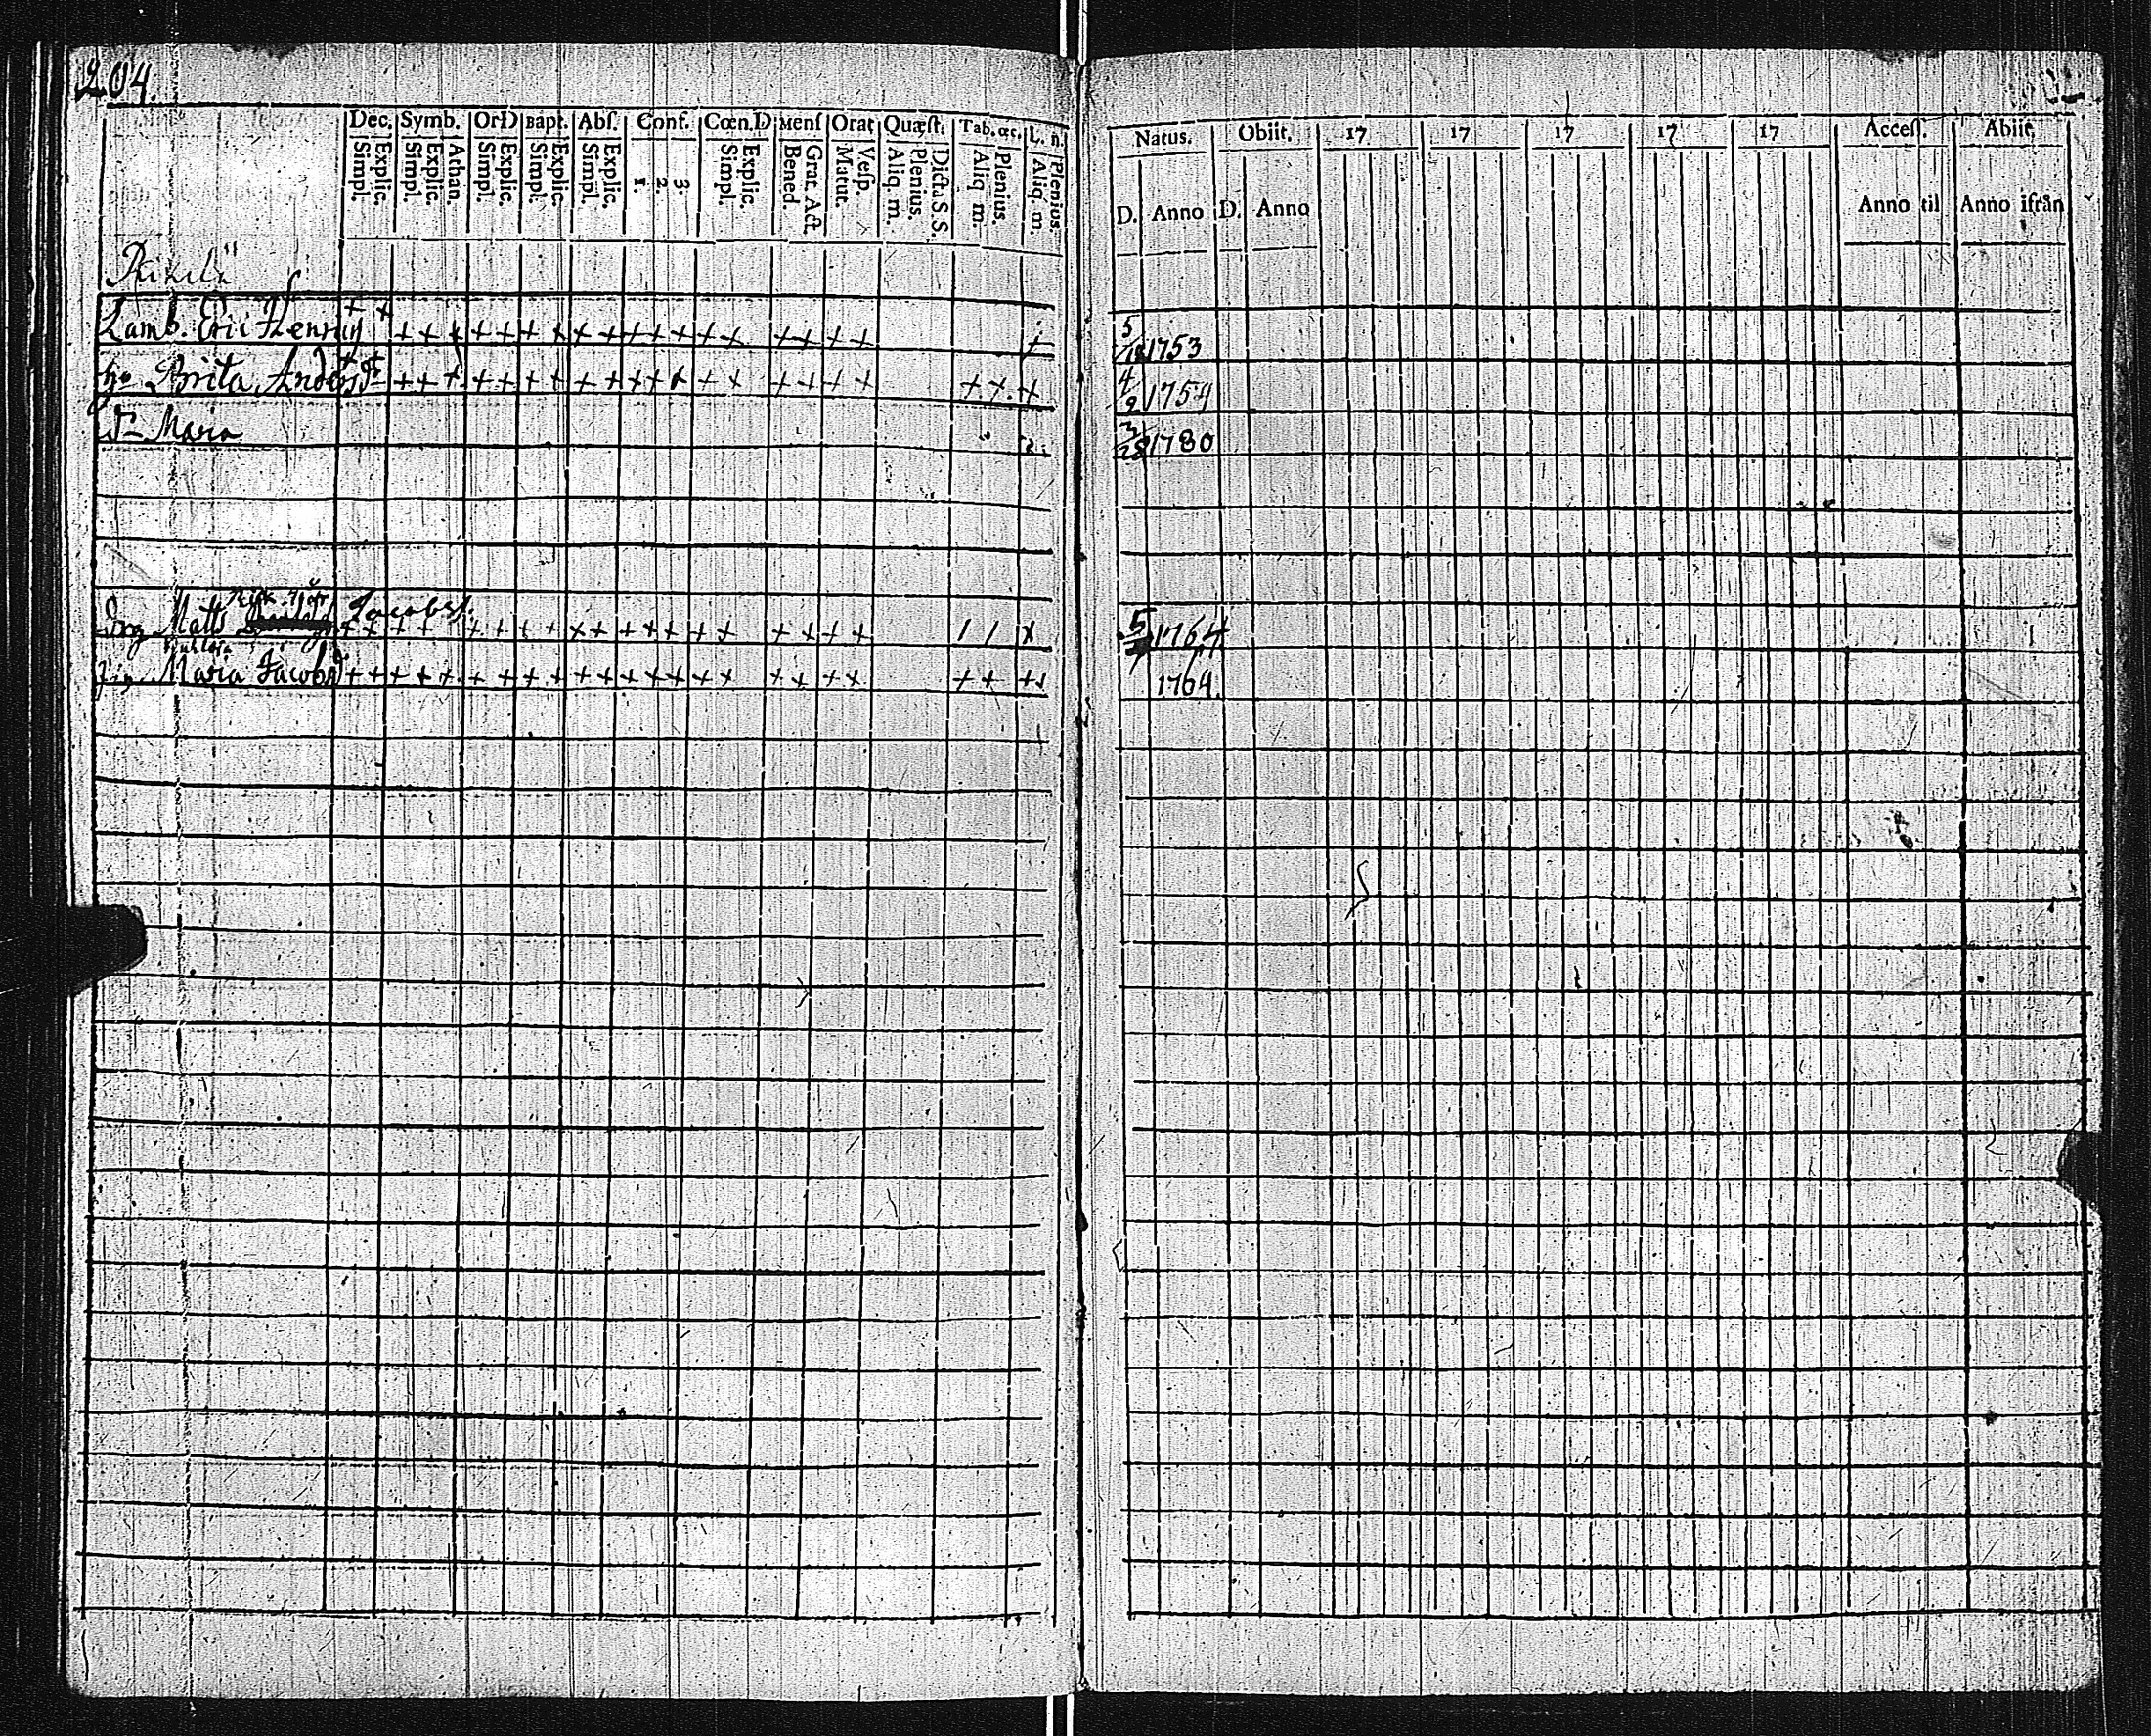 204.
Dec. Symb. OrD Bapt. Abſ. Conf. Cœn.D Menſ Orat Quæſt. Tab. œc. L. n.
Explic. Simpl. Athan. Explic. Simpl. Explic. Simpl. Explic. Simpl. Explic. Simpl. 3. 2. 1. Explic. Simpl. Grat. Act Bened. Veſp. Matut. Dicta S. S. Plenius. Aliq. m. Plenius. Aliq m. Plenius. Aliq. m.
Natus. Obiit. 17 17 17 17 17 Acceſſ. Abiit.
D. Anno D. Anno Anno til Anno ifrån
Lamb. Eric Henr + +
+ + + + + + + + + + + + + + + + + + +
5 1753
hu Brita Anders + +
+ + + + + + + + + + + + + + + + + + + + +
4/2 1754
Dr Maria
3/28 1780
Matts Jacobss.
+ + + + + + + + + + + + + + + + + + + / / x
5 1764
Maria Jacobs + + + + + + + + + + + + + + + + + + + + + + + +
1764.